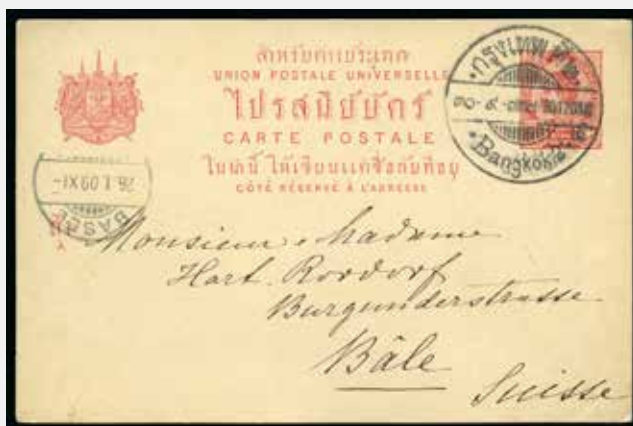 สำหรับต่างประเทศ
UNION POSTALE UNIVERSELLE
ไปรสนียบัตร์
CARTE POSTALE
ในน่านี้ ให้เขียนแต่ชื่อกับที่อยู่
CÔTÉ RÉSERVÉ À L'ADRESSE
กรุงเทพฯ
Bangkok
26.1.09.XI-
BASEL
Monsieur, Madame
Hart. Rordorf
Burgunderstrasse
Bâle
Suisse